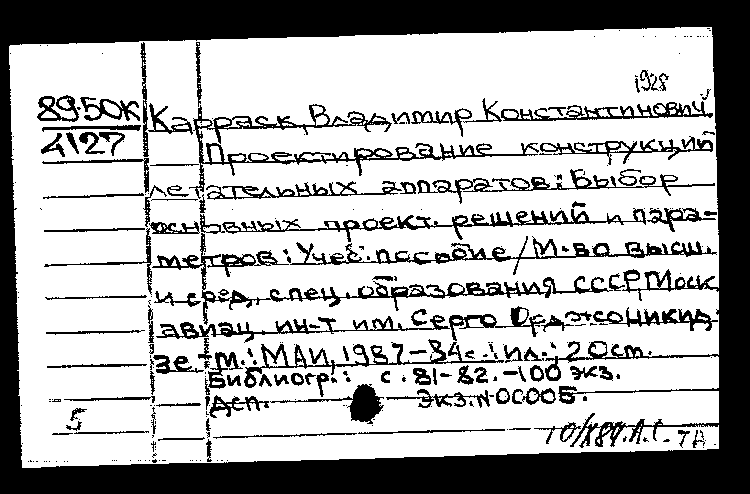 1928
89-50К Карраск, Владимир Константинович.
4127 Проектирование конструкций
летательных аппаратов: Выбор
основных проект. решений и пара-
метров: Учеб. пособие / М-во высш.
и сред. спец. образования СССР, Моск.
авиац. ин-т им. Серго Орджоникид-
зе -М.: МАИ, 1987-84с.: ил.; 20см.
Библиогр.: с. 81-82. -100 экз.
Дсп. Экз. N 00005.
5